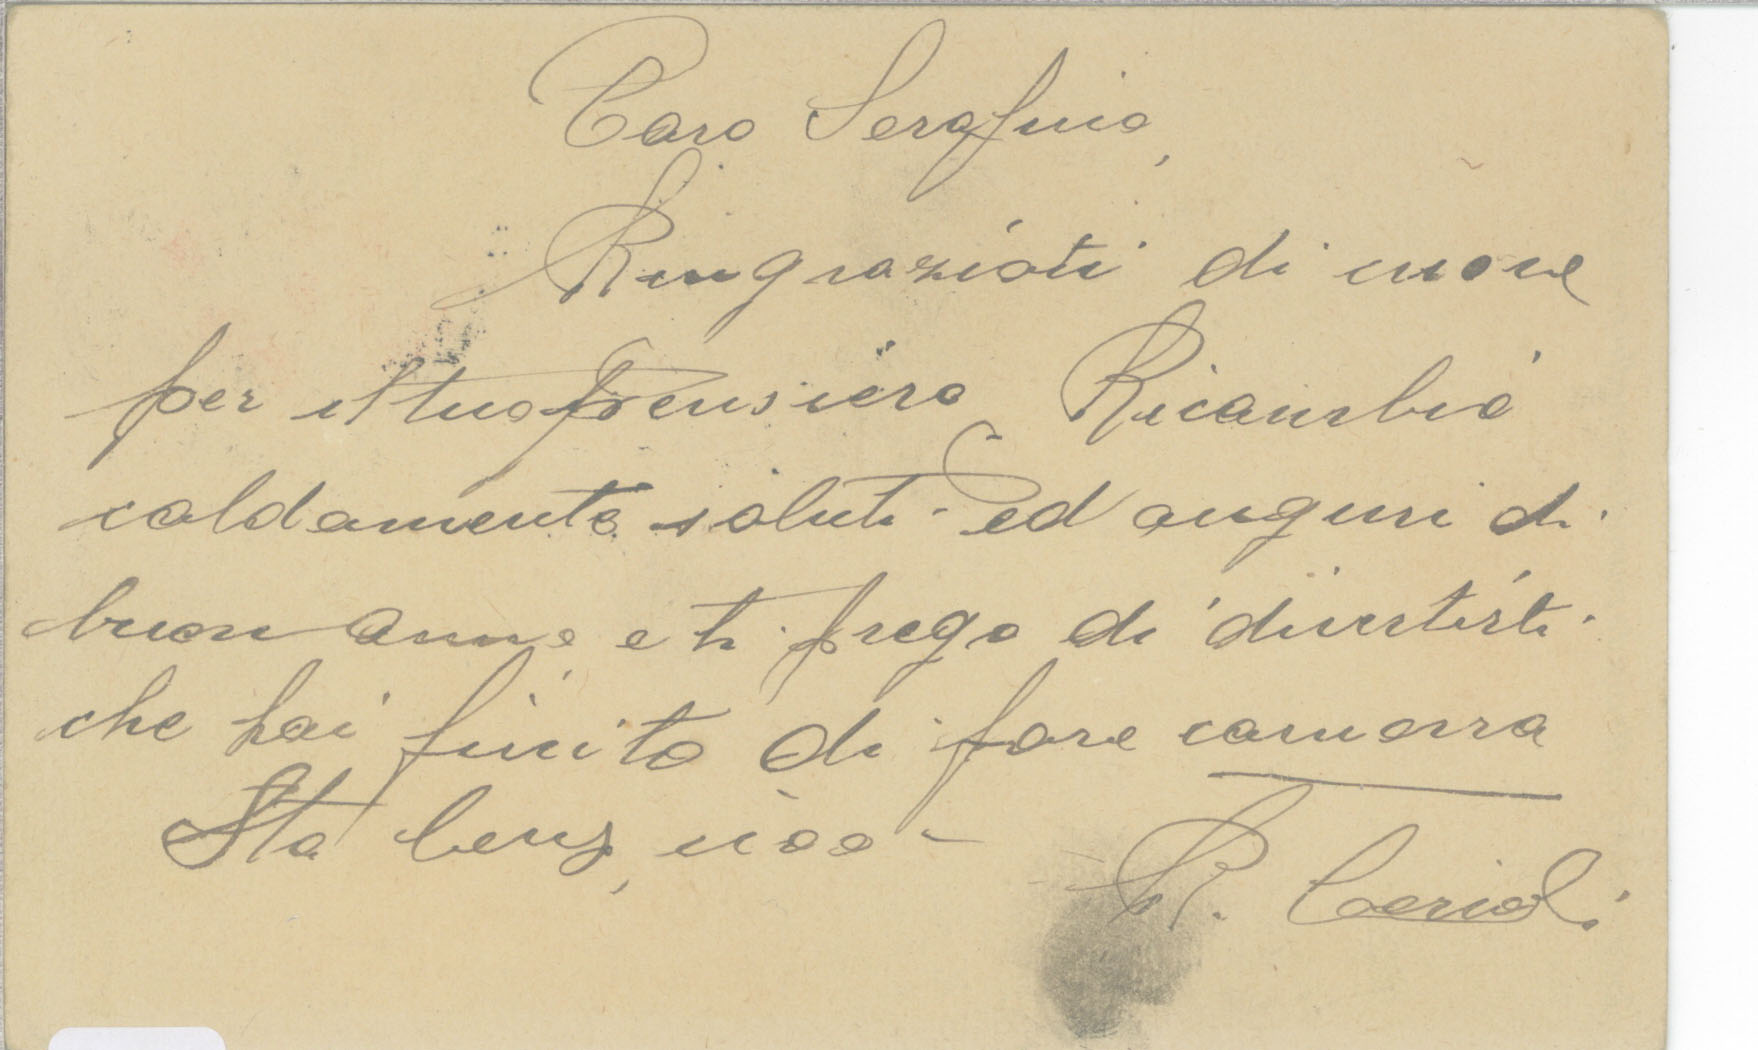 Caro Serafino,
Ringrazioti di cuore
per il tuo pensiero Ricambio
caldamente saluti ed auguri di
buon anno e ti prego di divertirti
che hai finito di fare camorra
Sta bene,
R. Cerioli